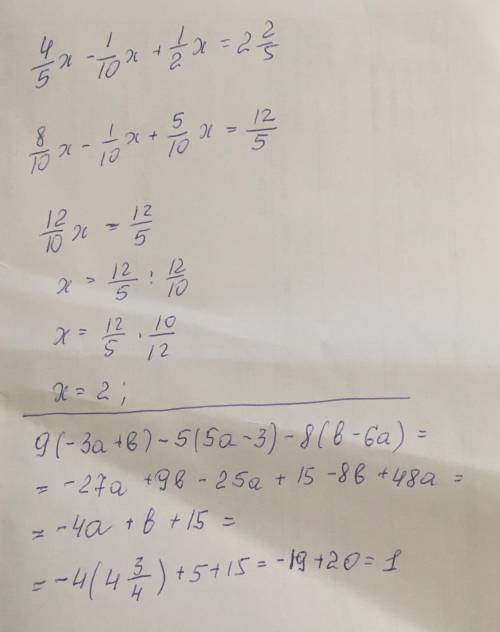 4/5 x - 1/10 x + 1/2 x = 2 2/5
8/10 x - 1/10 x + 5/10 x = 12/5
12/10 x = 12/5
x = 12/5 : 12/10
x = 12/5 · 10/12
x = 2 ;
9(-3a+b) - 5(5a-3) - 8(b-6a) =
= -27a + 9b - 25a + 15 - 8b + 48a =
= -4a + b + 15 =
= -4(4 3/4) + 5 + 15 = -19 + 20 = 1